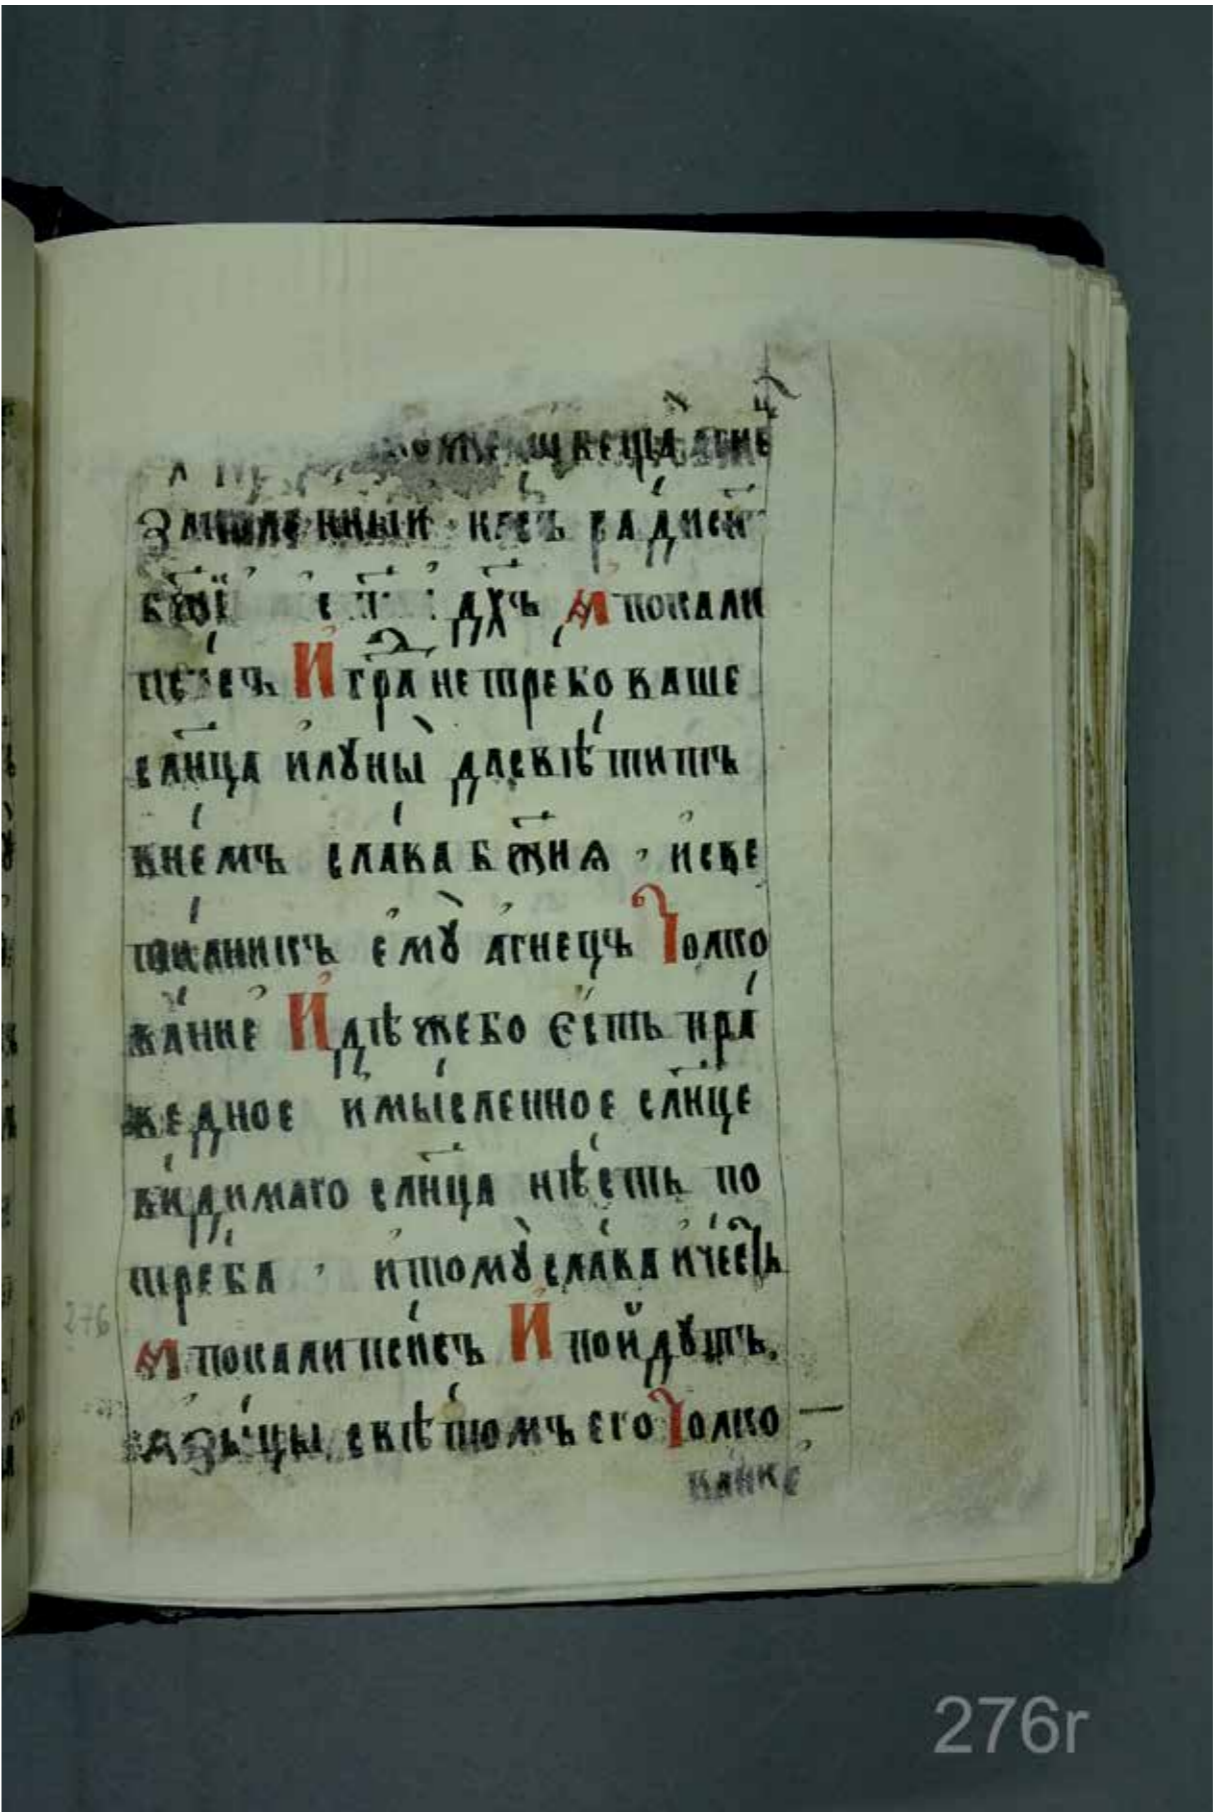 агне
закланный насъ ради сн҃ъ
бж҃їи дх҃ъ Апокали
псисъ И гра҇ нетребоваше
сл҃нца илꙋны даскѣтитъ
внемъ слава бж҃иѧ , исвѣ
тилникъ емꙋ агнецъ Толко
вание Идѣжебо єсть пра
ведное имысленное сл҃нце
видимаго сл҃нца нѣсть по
треба , итомꙋ слава ичесть
Апокалипсисъ И пойдꙋтъ.
ѧзыцы свѣтомъ его Толко
вание
276
276r